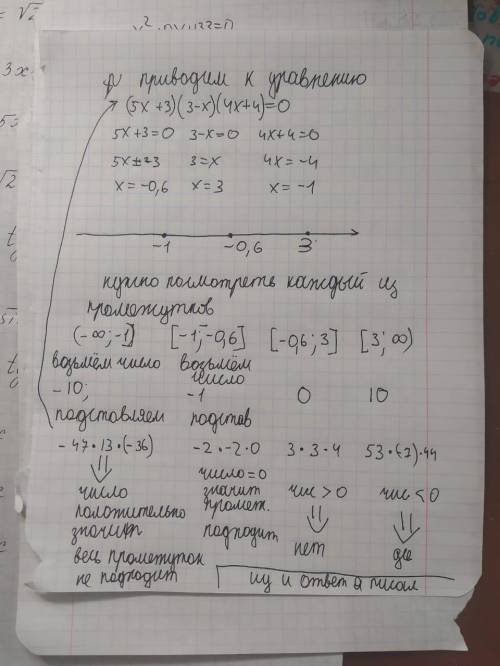 приводим к уравнению
(5x+3)(3-x)(4x+4)=0
5x+3=0 3-x=0 4x+4=0
5x=-3 3=x 4x=-4
x=-0,6 x=3 x=-1
-1 -0,6 3
нужно посмотреть каждый из
промежутков
(-∞;-1] [-1;-0,6] [-0,6;3] [3;∞)
возьмём число возьмём
число
-10; -1 0 10
подставляем подстав
-47·13·(-36) -2·-2·0 3·3·4 53·(-7)·44
число=0
число значит чис>0 чис<0
положительно промеж.
значит подходит
нет да
весь промежуток
не подходит ну и ответ я писал